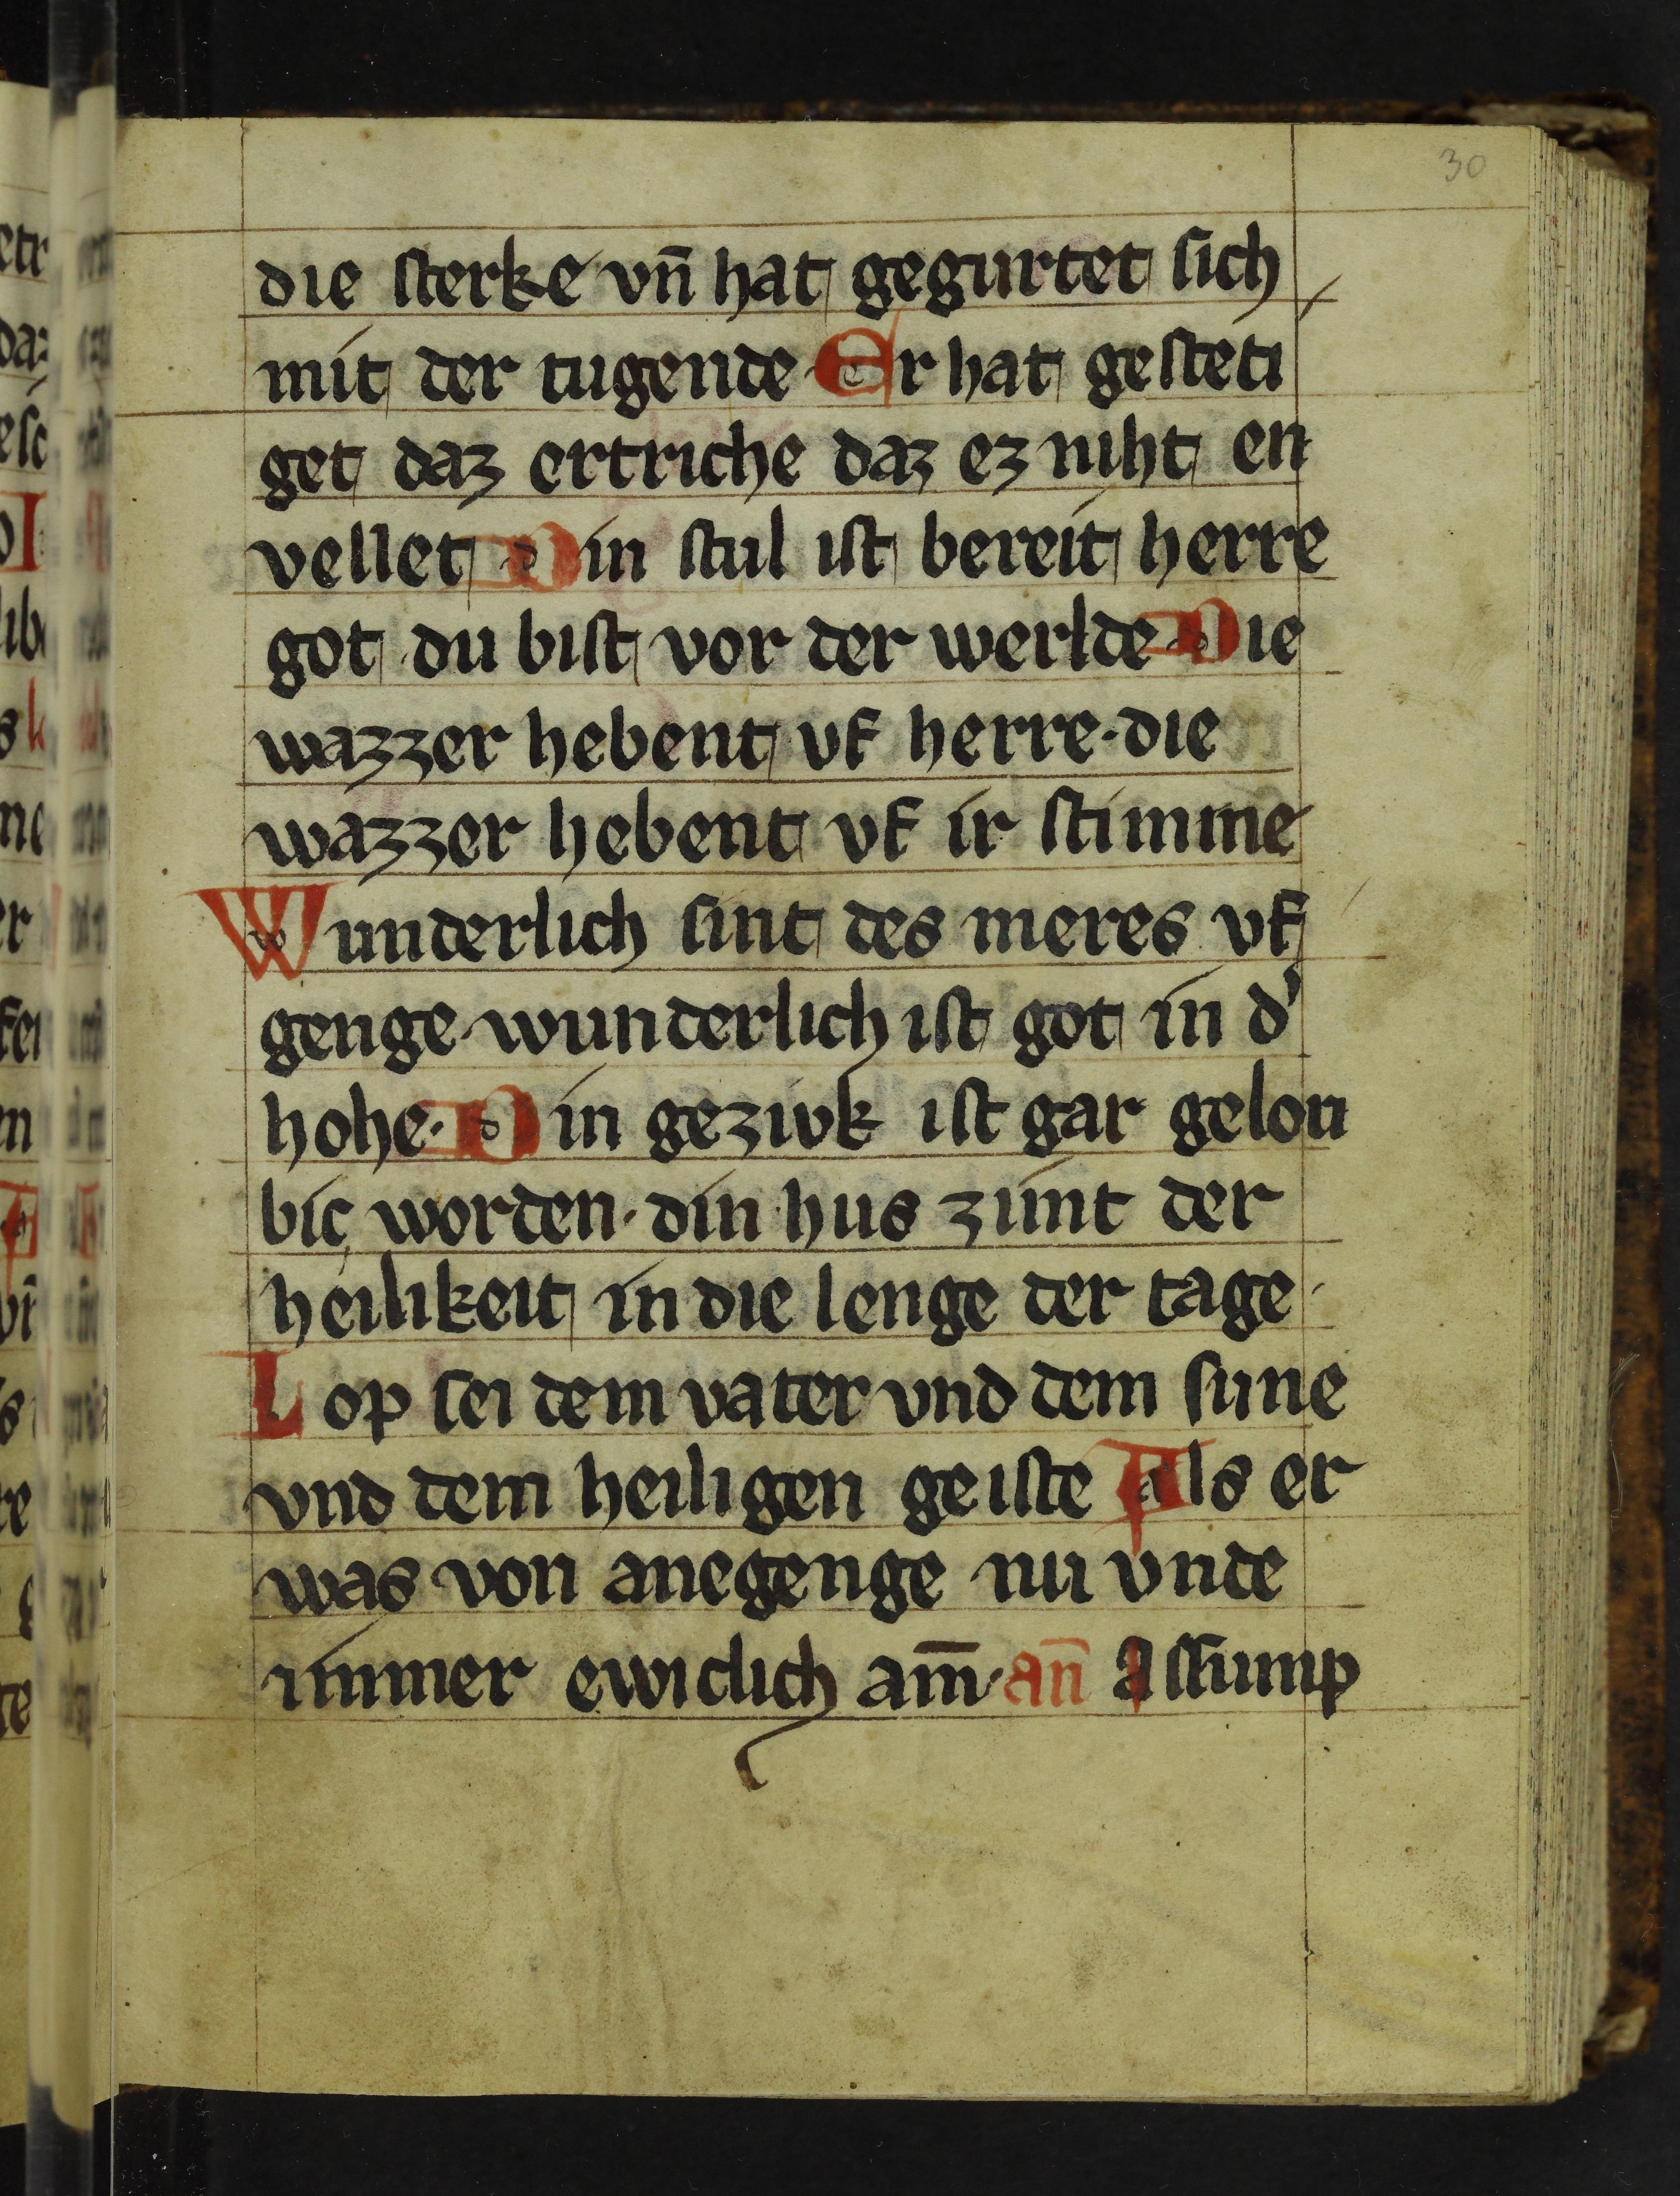 30
die sterke vn̄ hat gegurtet sich
mit der tugende · Er hat gesteti
get daz ertriche daz ez niht en
vellet · Din stul ist bereit herre
got du bist vor der werlde · Die
wazzer hebent vf herre · die
wazzer hebent vf ir stimme
Wunderlich sint des meres vf
genge · wunderlich ist got in d'
hohe · Din gezivk ist gar gelou
bic worden · din hus zimt der
heilikeit in die lenge der tage ·
Lop sei dem vater vnd dem sune
vnd dem heiligen geiste Als er
was von anegenge nu vnde
immer ewiclich am̄ · an̄ Assump